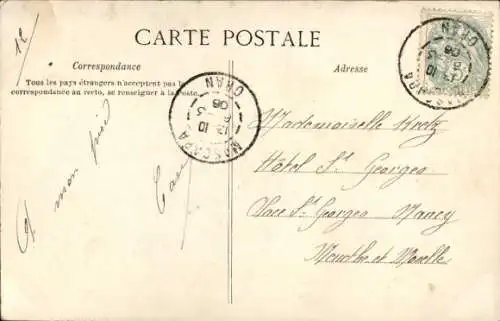 CARTE POSTALE
Correspondance
Adresse
Tous les pays étrangers n'acceptent pas la
correspondance au recto, se renseigner à la Poste.
MASCARA
ORAN
Mademoiselle
Hôtel St Georges
Place St Georges Nancy
Meurthe et Moselle
A mon